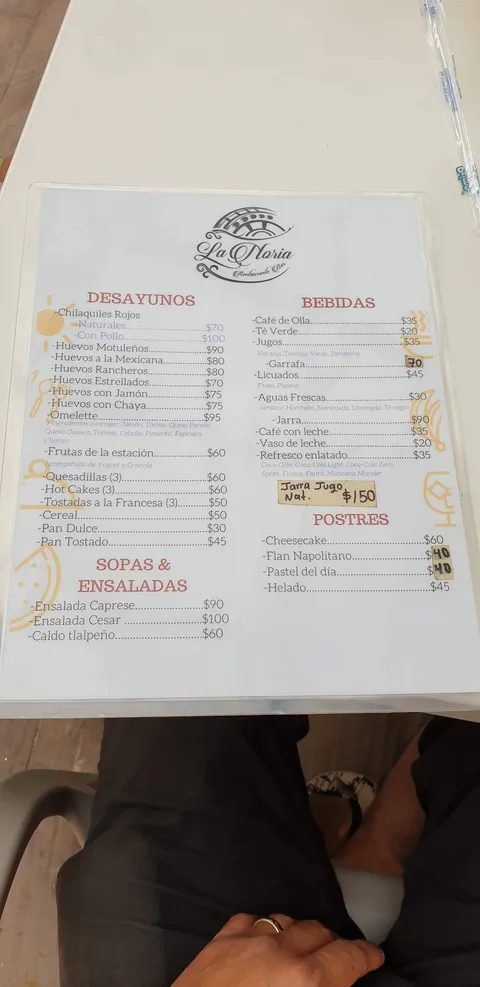 La Noria
Restaurante Bar
DESAYUNOS
-Chilaquiles Rojos
-Naturales...$70
-Con Pollo...$100
-Huevos Motuleños...$90
-Huevos a la Mexicana...$80
-Huevos Rancheros...$80
-Huevos Estrellados...$70
-Huevos con Jamón...$75
-Huevos con Chaya...$75
-Omelette...$95
Ingredientes a escoger: Jamón, Tocino, Queso Panela,
Queso Oaxaca, Tomate, Cebolla, Pimiento, Espinaca,
Chorizo
-Frutas de la estación...$60
Acompañado de Yogurt y Granola
-Quesadillas (3)...$60
-Hot Cakes (3)...$60
-Tostadas a la Francesa (3)...$50
-Cereal...$50
-Pan Dulce...$30
-Pan Tostado...$45
SOPAS &
ENSALADAS
-Ensalada Caprese...$90
-Ensalada Cesar...$100
-Caldo tlalpeño...$60
BEBIDAS
-Café de Olla...$35
-Té Verde...$20
-Jugos...$35
Naranja, Toronja, Verde, Zanahoria
-Garrafa...70
-Licuados...$45
Fresa, Platano
-Aguas Frescas...$30
Jamaica, Horchata, Naranjada, Limonada, Té negro
-Jarra...$90
-Café con leche...$35
-Vaso de leche...$20
-Refresco enlatado...$35
Coca-Cola, Coca-Cola Light, Coca-Cola Zero,
Sprite, Fresca, Fanta, Manzana, Mundet
Jarra Jugo
Nat. $150
POSTRES
-Cheesecake...$60
-Flan Napolitano...$40
-Pastel del día...$40
-Helado...$45